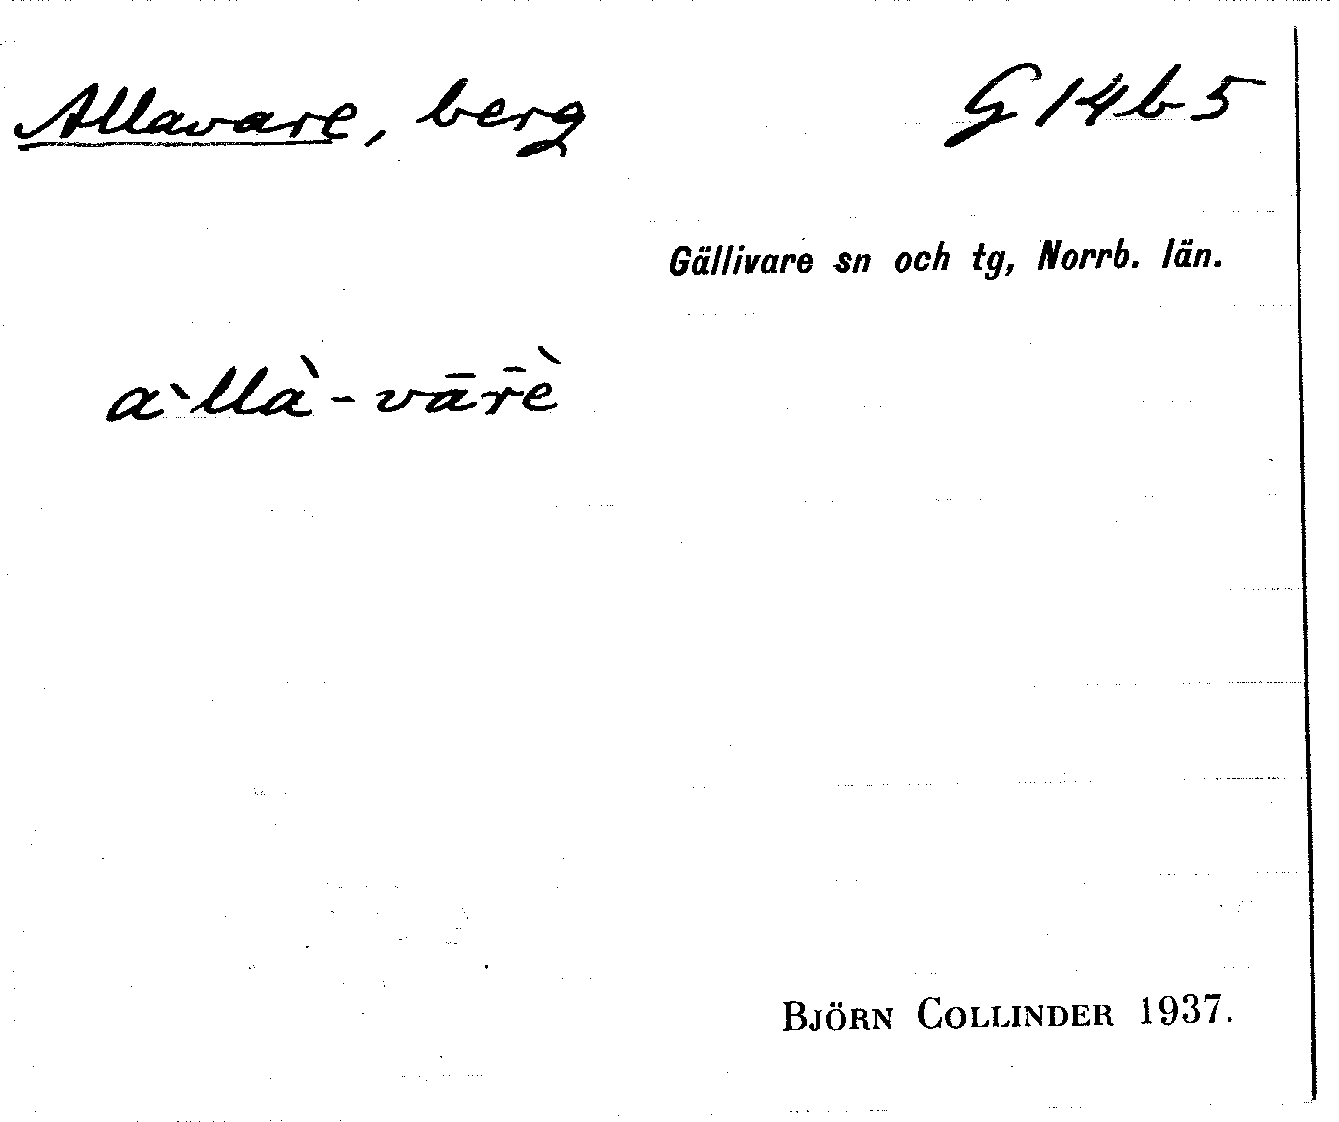 Allavare, berg G 14 b 5
Gällivare sn och tg, Norrb. län.
a`llà-vār̄è
BJÖRN COLLINDER 1937.